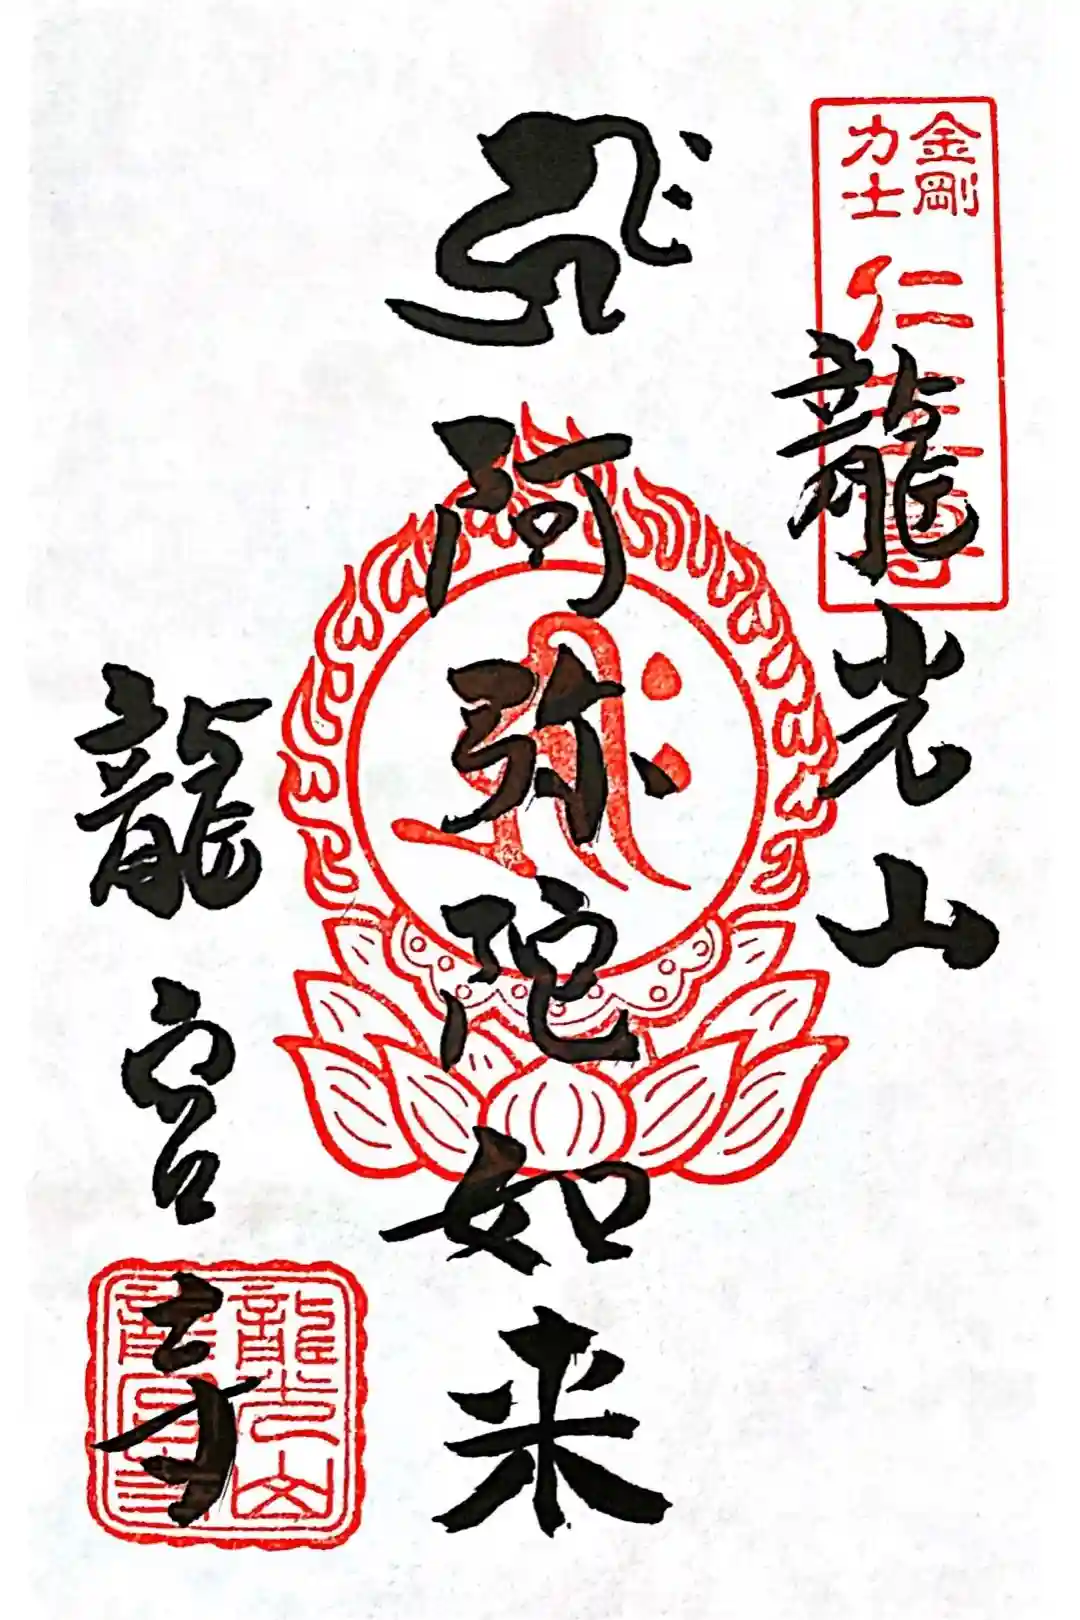 金剛
力士
仁王尊
龍光山
𑖮𑖿𑖨𑖱𑖾
阿弥陀如来
龍宮寺
龍光山
龍宮寺